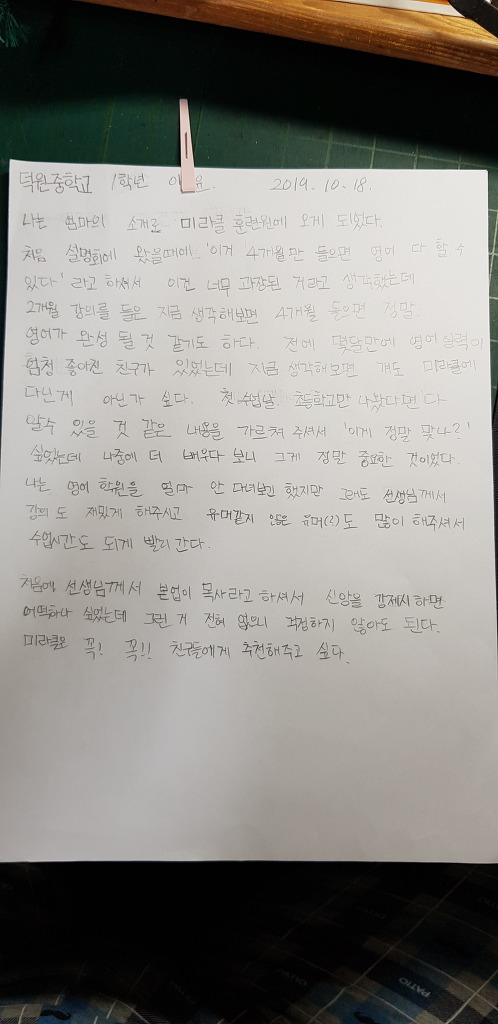 덕원중학교 1학년 이 유. 2019. 10. 18.
나는 엄마의 소개로 미라클 훈련원에 오게 되었다.
처음 설명회에 왔을때에 '이거 4개월만 들으면 영어 다 할 수
있다' 라고 하셔서 이건 너무 과장된 거라고 생각했는데
2개월 강의를 들은 지금 생각해보면 4개월 들으면 정말.
영어가 완성 될 것 같기도 하다. 전에 몇달만에 영어 실력이
엄청 좋아진 친구가 있었는데 지금 생각해보면 걔도 미라클에
다닌게 아닌가 싶다. 첫 수업날 초등학교만 나왔다면 다
알 수 있을 것 같은 내용을 가르쳐 주셔서 '이게 정말 맞나?'
싶었는데 나중에 더 배우다 보니 그게 정말 중요한 것이었다.
나는 영어 학원을 얼마 안 다녀보긴 했지만 그래도 선생님께서
강의도 재밌게 해주시고 유머같지 않은 유머(?)도 많이 해주셔서
수업시간도 되게 빨리 간다.
처음에 선생님께서 본업이 목사라고 하셔서 신앙을 강제시 하면
어떡하나 싶었는데 그런 거 전혀 없으니 걱정하지 않아도 된다.
미라클은 꼭! 꼭!! 친구들에게 추천해주고 싶다.
PATIO